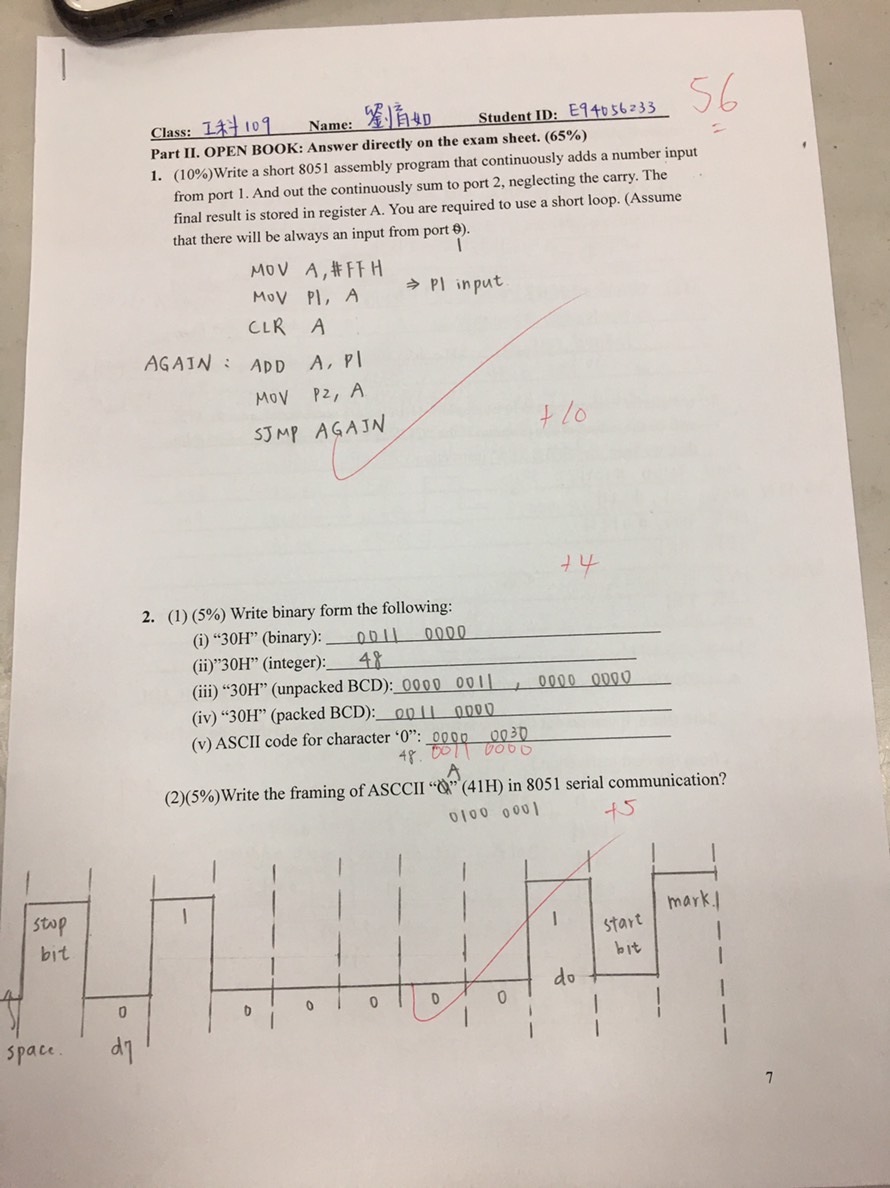 56
Class: 工科109 Name: 劉倩如 Student ID: E94056233
Part II. OPEN BOOK: Answer directly on the exam sheet. (65%)
1. (10%)Write a short 8051 assembly program that continuously adds a number input
from port 1. And out the continuously sum to port 2, neglecting the carry. The
final result is stored in register A. You are required to use a short loop. (Assume
that there will be always an input from port 0).
1
MOV A, #FFH
MOV P1, A ⇒ P1 input
CLR A
AGAIN : ADD A, P1
MOV P2, A
SJMP AGAIN
+10
+4
2. (1) (5%) Write binary form the following:
(i) “30H” (binary): 0011 0000
(ii)”30H” (integer): 48
(iii) “30H” (unpacked BCD): 0000 0011 , 0000 0000
(iv) “30H” (packed BCD): 0011 0000
(v) ASCII code for character ‘0’: 0000 0030
48. 0011 0000
A
(2)(5%)Write the framing of ASCCII “0” (41H) in 8051 serial communication?
0100 0001
+5
stop bit 1 1 start bit mark.
0 0 0 0 0 0 d0
space. d7
7